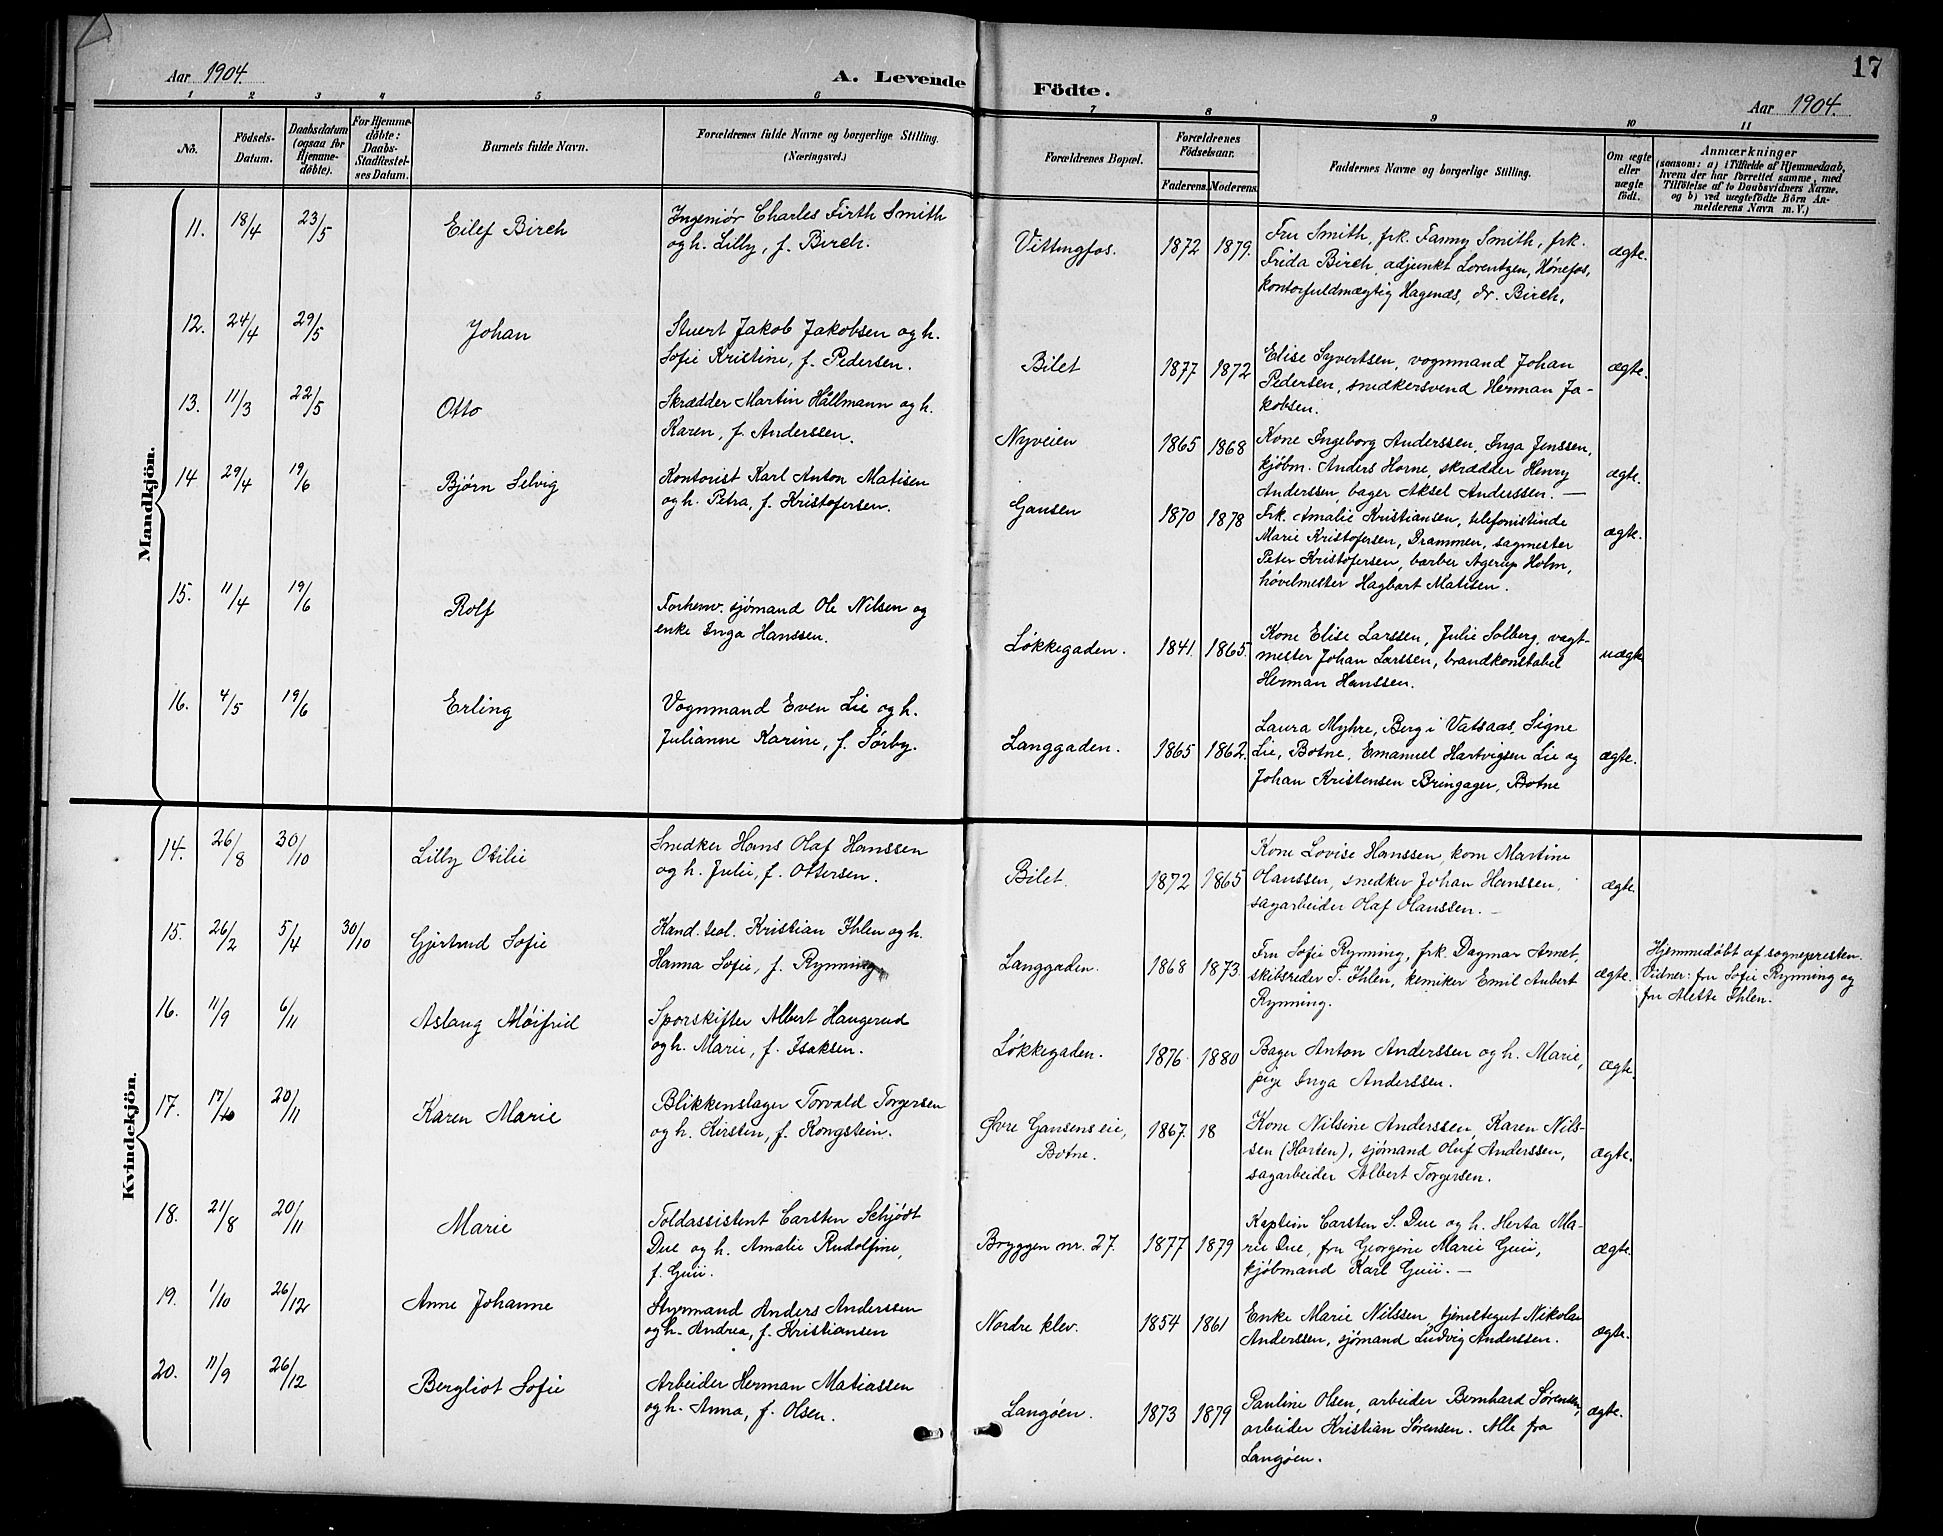 Aar 1904.
A. Levende Födte.
17
Aar 1904.
1 2 3 4 5 6 7 8 9 10 11
No.
Födsels-
Datum.
Daabsdatum
(ogsaa for
Hjemme-
döbte).
For Hjemme-
döbte:
Daabs-
Stadfæstel-
ses Datum.
Barnets fulde Navn.
Forældrenes fulde Navne og borgerlige Stilling.
(Næringsvei.)
Forældrenes Bopæl.
Forældrenes
Födselsaar.
Faderens.
Moderens.
Faddernes Navne og borgerlige Stilling.
Om ægte
eller
uægte
födt.
Anmærkninger
(saasom: a) i Tilfælde af Hjemmedaab,
hvem der har forrettet samme, med
Tilföielse af to Daabsvidners Navne,
og b) ved uægtefödte Börn An-
melderens Navn m. V.)
Mandkjön.
11. 18/4 23/5 Eilef Birch
Ingeniør Charles Firth Smith
og h. Lilly, f. Birch.
Vittingfos. 1872 1879.
Fru Smith, frk. Fanny Smith, frk.
Frida Birch, adjunkt Lorentzen, Hønefos,
kontorfuldmægtig Hagenæs, dr. Birch.
ægte.
12. 24/4 29/5 Johan
Stuert Jakob Jakobsen og h.
Sofie Kristine, f. Pedersen.
Bilet 1877 1872
Elise Syvertsen, vognmand Johan
Pedersen, snedkersvend Herman Ja-
kobsen.
ægte.
13. 11/3 22/5 Otto
Skrædder Martin Hållmann og h.
Karen, f. Anderssen.
Nyveien 1865 1868
Kone Ingeborg Anderssen, Inga Jenssen,
kjøbm. Anders Horne, skrædder Henry
Anderssen, bager Aksel Anderssen. —
ægte.
14 29/4 19/6 Bjørn Selvig
Kontorist Karl Anton Matisen
og h. Petra, f. Kristofersen.
Gansen 1870 1878
Frk. Amalie Kristiansen, telefonistinde
Marie Kristofersen, Drammen, sagmester
Peter Kristofersen, barber Agerup Holm,
høvelmester Hagbart Matisen.
ægte.
15. 11/4 19/6 Rolf
Forhenv. sjømand Ole Nilsen og
enke Inga Hanssen.
Løkkegaden. 1841. 1865.
Kone Elise Larssen, Julie Solberg, vagt-
mester Johan Larssen, brandkonstabel
Herman Hanssen.
uægte
16. 4/5 19/6 Erling
Vognmand Even Lie og h.
Julianne Karine, f. Sørby.
Langgaden. 1865 1862.
Laura Myhre, Berg i Vatsaas, Signe
Lie, Botne, Emanuel Hartvigsen Lie og
Johan Kristensen Bringager, Botne
ægte.
Kvindekjön.
14. 26/8 30/10 Lilly Otilie
Snedker Hans Olaf Hanssen
og h. Julie, f. Ottersen.
Bilet. 1872 1865
Kone Lovise Hanssen, kone Martine
Olanssen, snedker Johan Hanssen,
sagarbeider Olaf Olanssen. —
ægte.
15. 26/2 5/4 30/10 Gjertrud Sofie
Kand. teol. Kristian Ihlen og h.
Hanna Sofie, f. Rynning
Langgaden. 1868 1873.
Fru Sofie Rynning, frk. Dagmar Arnet,
skibsreder T. Ihlen, kemiker Emil Aubert
Rynning.
ægte.
Hjemmedøbt af sognepresten.
Vidner: fru Sofie Rynning og
fru Mette Ihlen.
16. 11/9 6/11 Aslaug Møifrid
Sporskifter Albert Haugerud
og h. Marie, f. Isaksen.
Løkkegaden. 1876. 1880
Bager Anton Anderssen og h. Marie,
pige Inga Anderssen.
ægte.
17. 17/10 20/11 Karen Marie
Blikkenslager Torvald Torgersen
og h. Kirsten, f. Kongstein.
Øvre Gansens eie,
Botne.
1867. 18
Kone Nilsine Anderssen, Karen Nils-
sen (Horten), sjømand Oluf Anderssen,
sagarbeider Albert Torgersen.
ægte.
18. 21/8 20/11 Marie
Toldassistent Carsten Schjødt
Due og h. Amalie Rudolfine,
f. Guii.
Bryggen nr. 27. 1877 1879
Kaptein Carsten S. Due og h. Herta Ma-
rie Due, fru Georgine Marie Guii,
kjøbmand Karl Guii. —
ægte.
19. 1/10 26/12 Anne Johanne
Styrmand Anders Anderssen
og h. Andrea, f. Kristiansen
Nordre klev. 1854 1861
Enke Marie Nilssen, tjenstegut Nikolai
Anderssen, sjømand Ludvig Anderssen.
ægte.
20. 11/9 26/12 Bergliot Sofie
Arbeider Herman Matiassen
og h. Anna, f. Olsen.
Langøen. 1873 1879
Pauline Olsen, arbeider Bernhard Sørensen,
arbeider Kristian Sørensen. Alle fra
Langøen.
ægte.